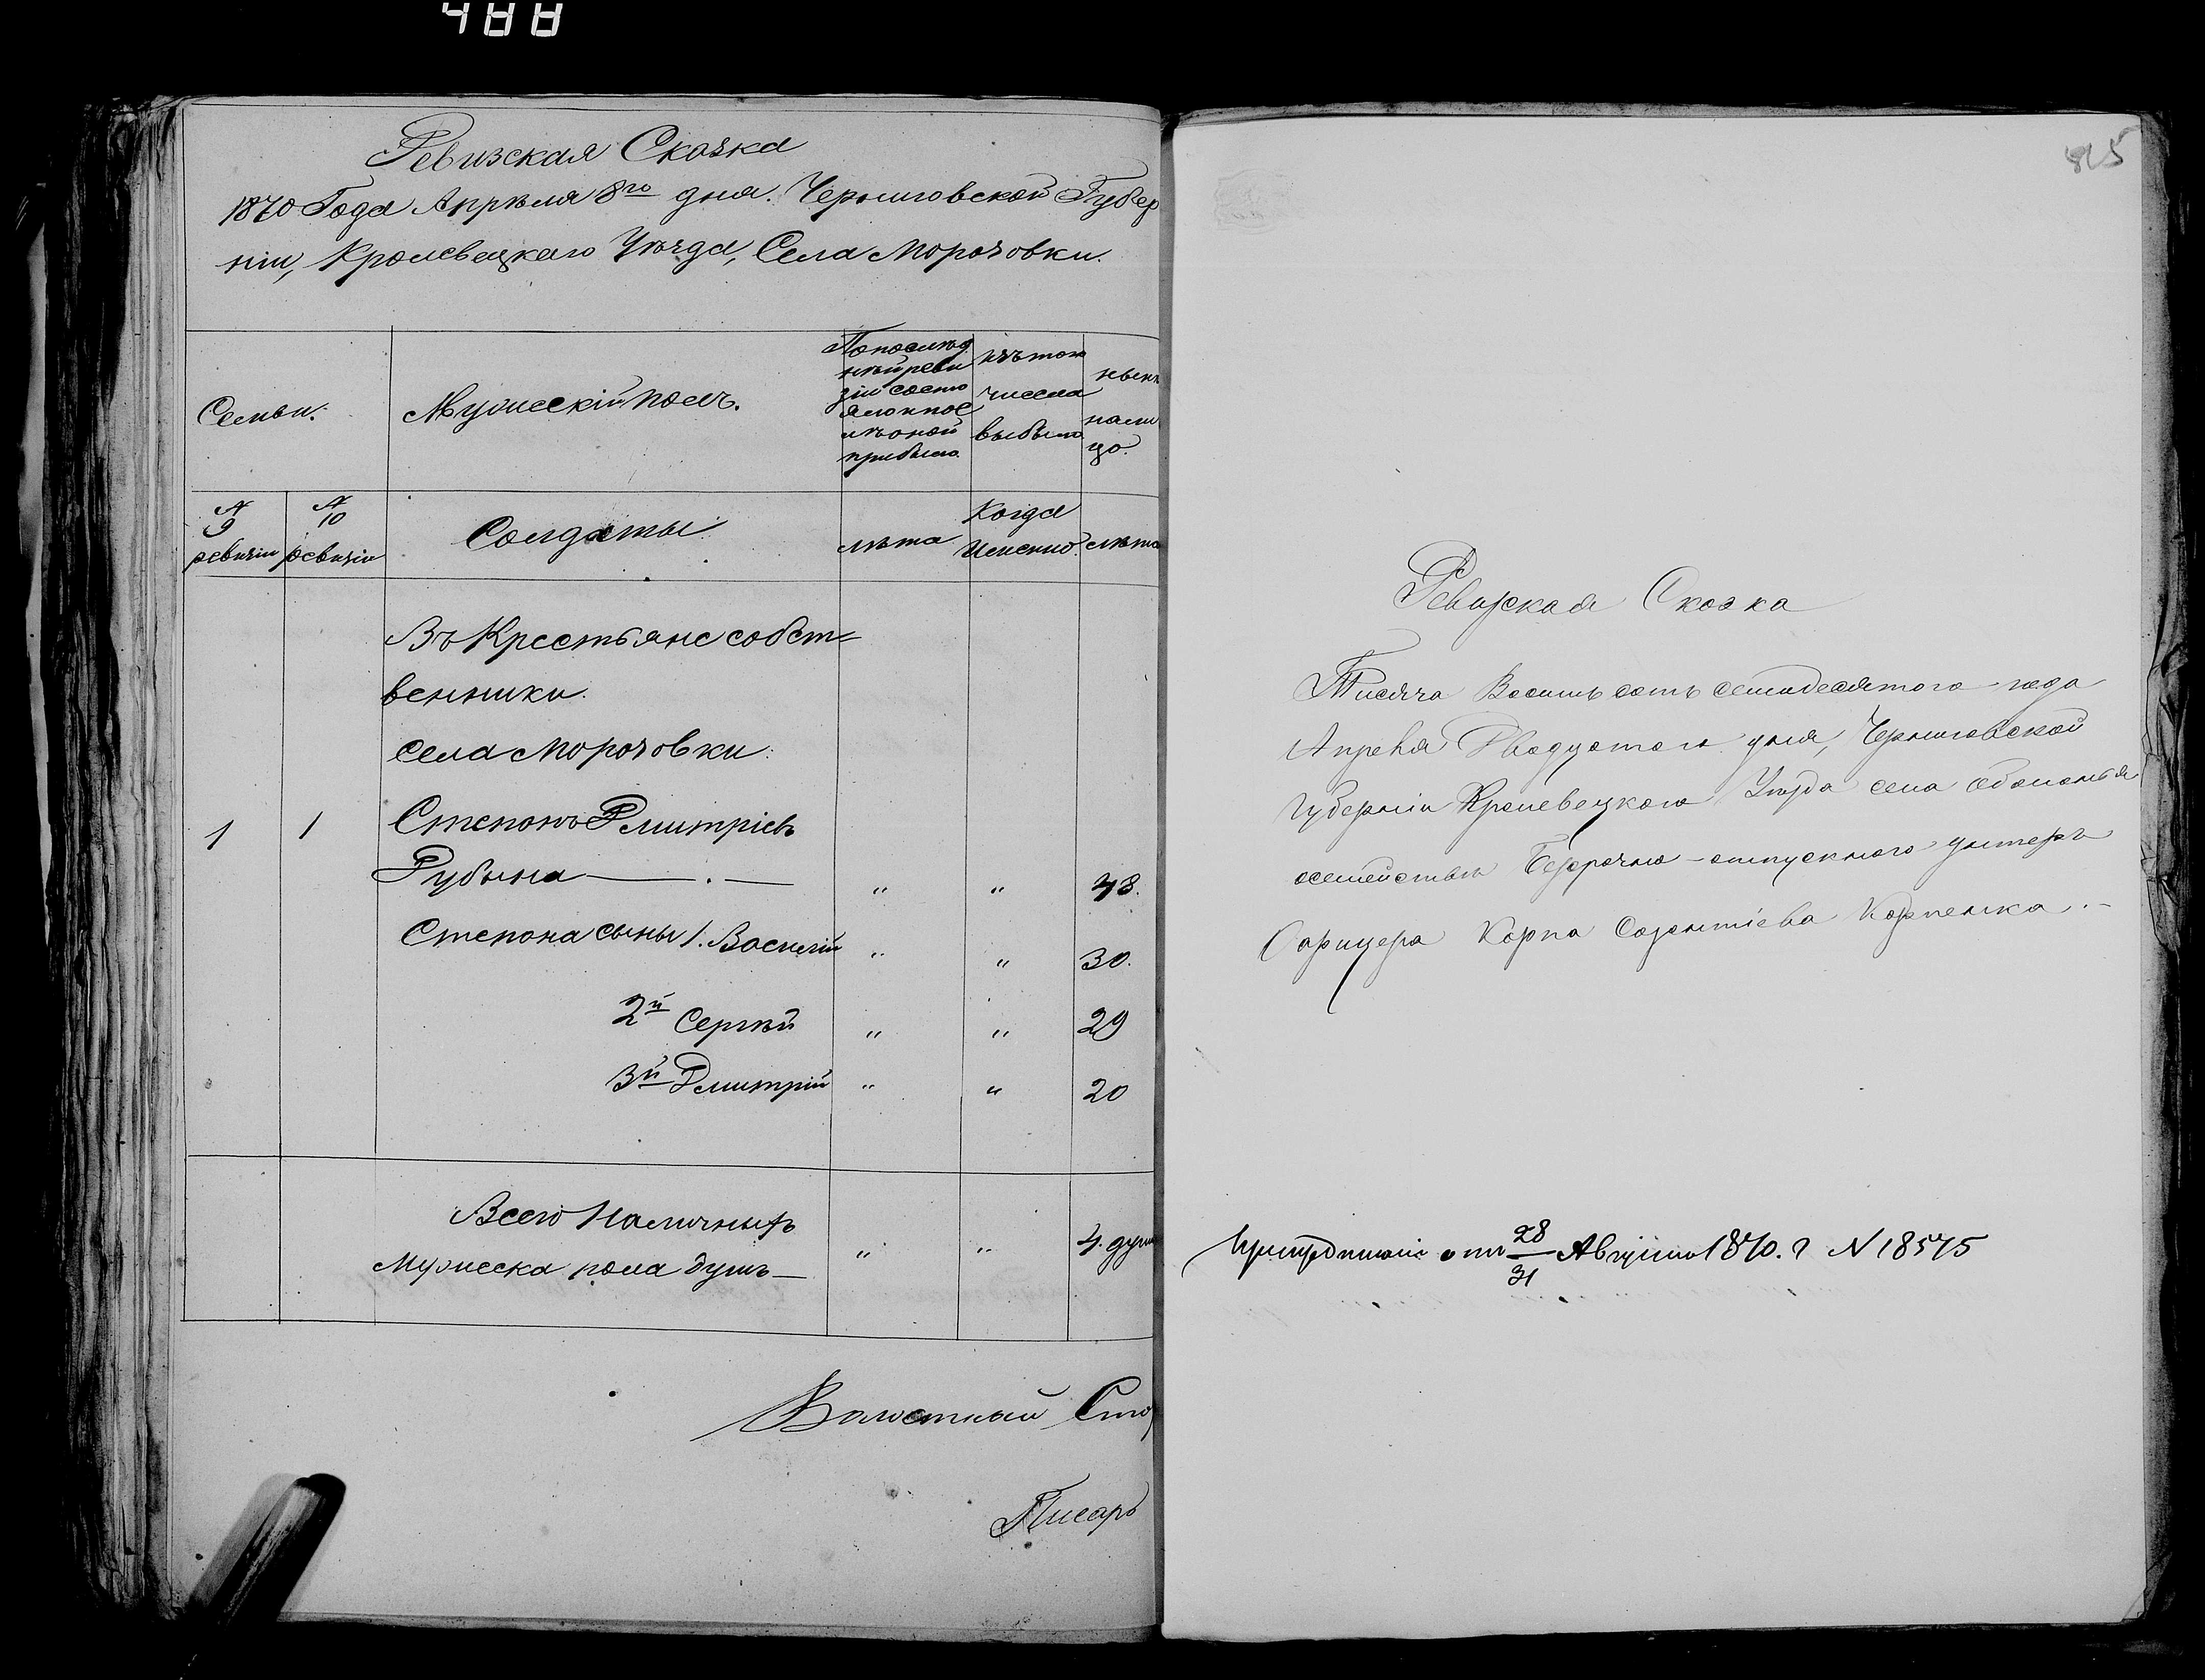 488
Ревизская Сказка
1870 Года Апрѣля 8го дня. Черниговской Губер
ніи, Кролевецкаго Уѣзда, Села Морозовки.
Семьи.
Мужескій полъ.
По послѣд
ней реви
зіи состо
яло и пос
лѣ оной
прибыло.
изъ того
числа
выбыло
нынѣ
нали
цо.
№ 9 ревизіи
№ 10 ревизіи
Солдаты.
лѣта
Когда
Именно.
лѣта
Въ Крестьяне собст=
венники.
села Морозовки.
1 1 Степанъ Дмитріевъ
Рубана — . — " " 48.
Степана сыны 1. Василій " " 30.
2й Сергѣй " " 29
3й Дмитрій " " 20
Всего Наличныхъ
Мужеска пола душъ — " " 4. душ
Волостной Ста
Писарь
Ревизская Сказка
Тисяча Восимь сотъ семидесятого года
Апреля Двадцатого дня, Черниговской
Губерніи Кролевецкого Уезда села
осемействѣ Безсрочно-отпускного унтеръ
Офицера Карпа Карпенка.-
от 28/31 Августа 1870. г N 18575